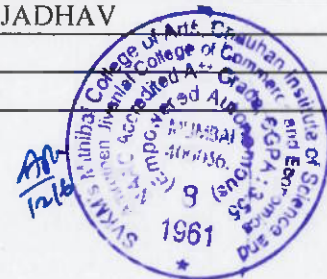 JADHAV
SVKM's Mithibai College of Arts, Chauhan Institute of Science and
Amrutben Jivanlal College of Commerce and Economics
NAAC Accredited A++ Grade, CGPA: 3.55
(Empowered Autonomous)
MUMBAI
400056.
1961
★